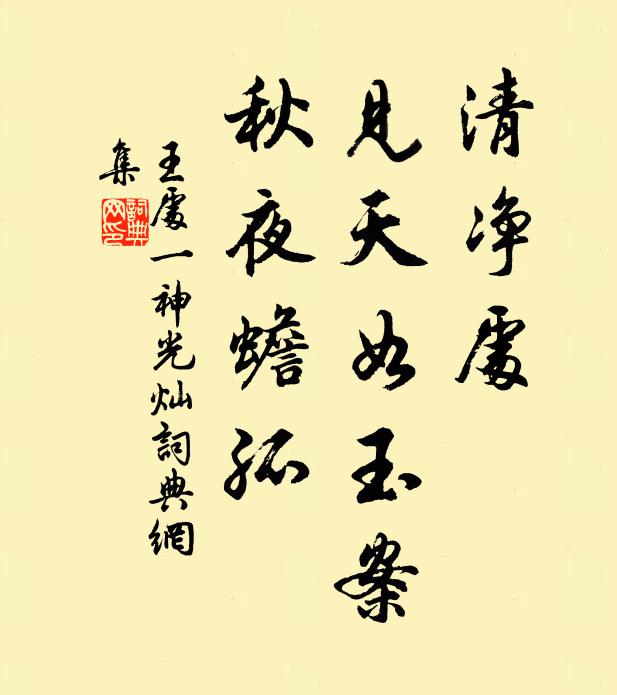 清净處
見天如玉案
秋夜蟾孤
王處一神光灿詞典網
集
詞典网印